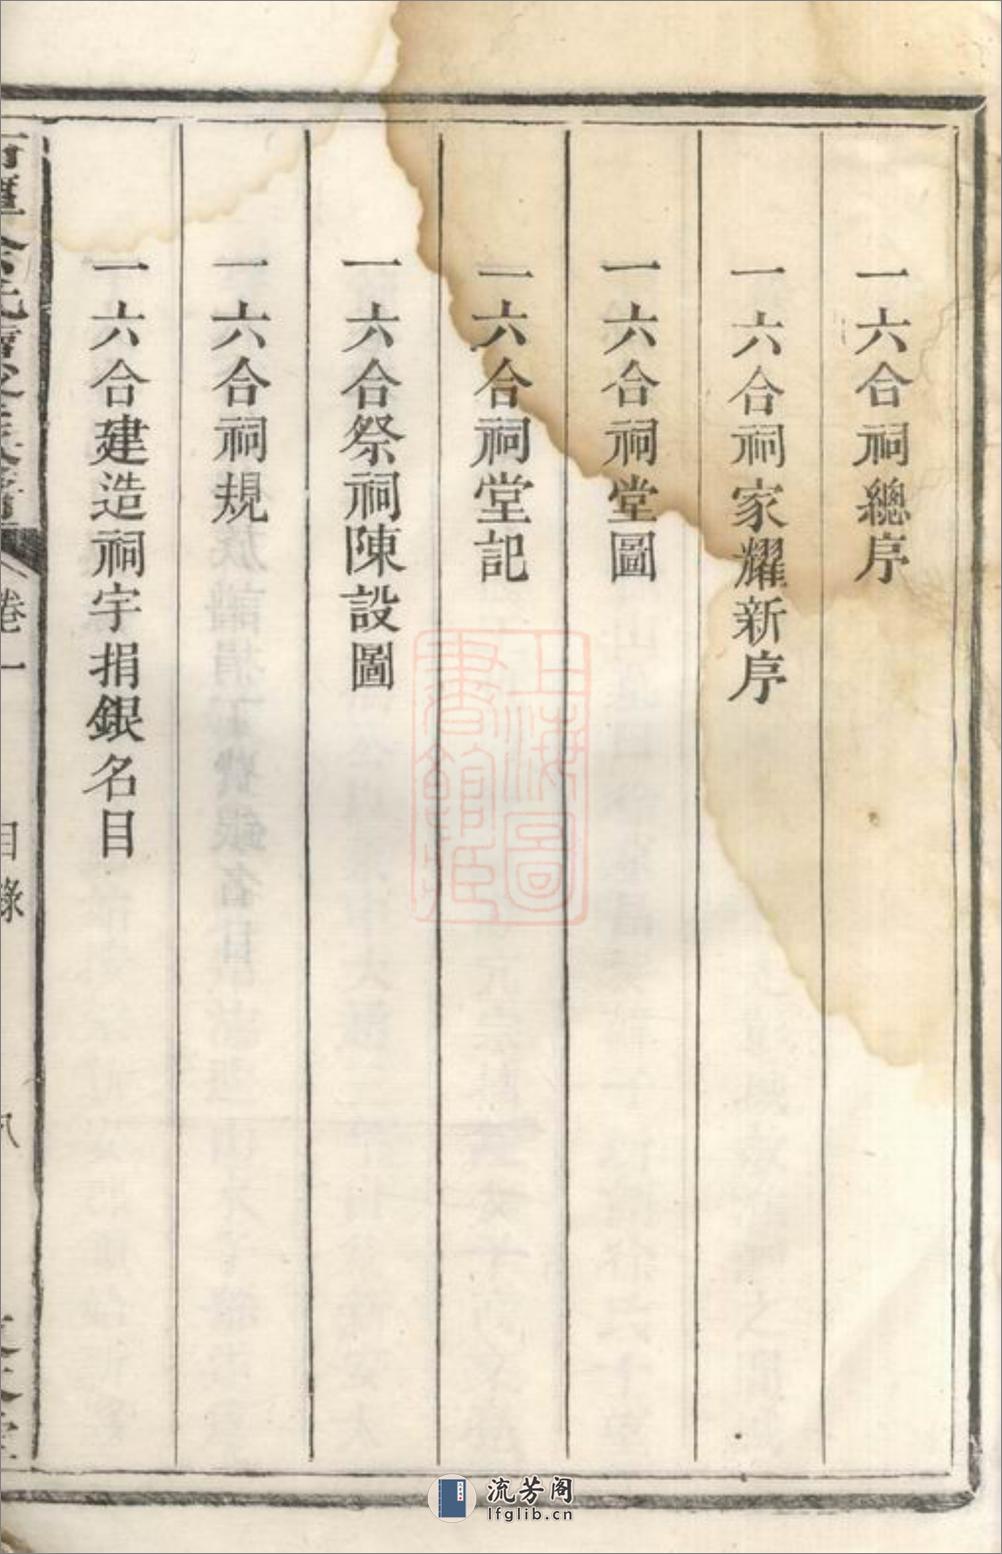 一六合祠總序
一六合祠家耀新序
一六合祠堂圖
一六合祠堂記
一六合祭祠陳設圖
一六合祠規
一六合建造祠宇捐銀名目
卷一
目錄
八
上海圖書館藏
流芳阁
lfglib.cn